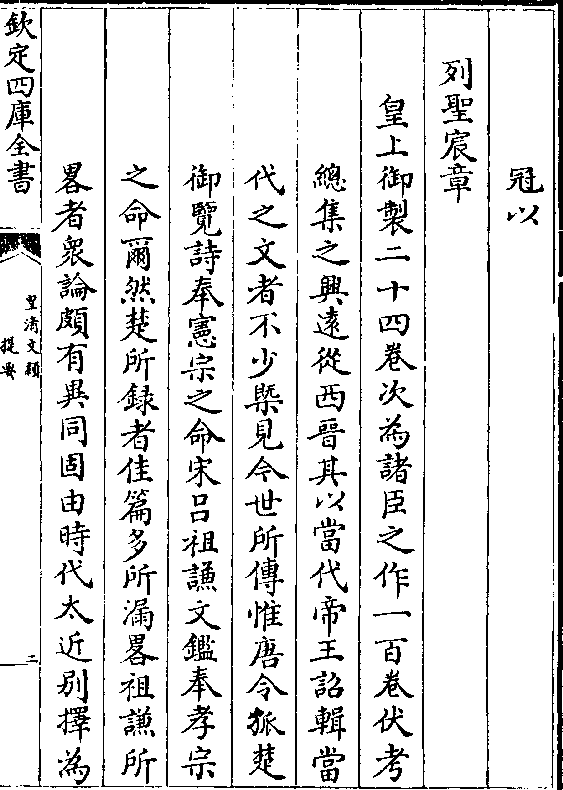 冠以
列聖宸章
皇上御製二十四卷次為諸臣之作一百卷伏考
總集之興遠從西晉其以當代帝王詔輯當
代之文者不少槩見今世所傳惟唐令狐楚
御覽詩奉憲宗之命宋吕祖謙文鑑奉孝宗
之命爾然楚所録者佳篇多所漏畧祖謙所
畧者衆論頗有異同固由時代太近别擇為
欽定四庫全書
皇清文穎
提要
二